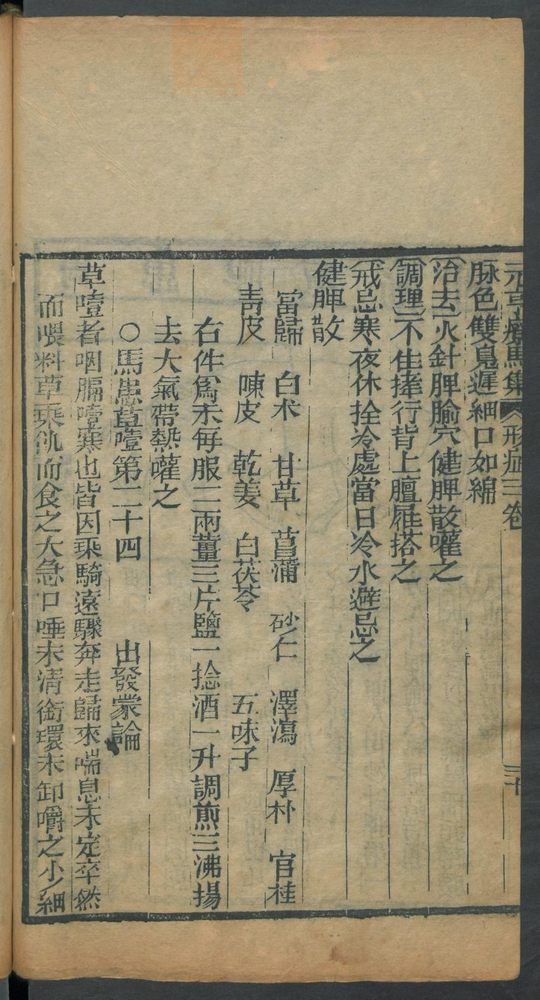 元亨療馬集 形症三卷 三十
脉色雙鳬遲細口如綿
治去火針脾腧穴健脾散嚾之
調理不住搼行背上膻屜搭之
戒忌寒夜休拴冷處當日冷水避忌之
健脾散
當歸 白术 甘草 菖蒲 砂仁 澤瀉 厚朴 官桂
青皮 陳皮 乾姜 白茯苓 五味子
右件爲末每服二兩薑三片鹽一捻酒一升調煎三沸揚
去大氣帶熱嚾之
○馬患草噎第二十四 出發蒙論
草噎者咽膈噎塞也皆因乘騎遠驟奔走歸來喘息未定卒然
而喂料草乘飢而食之大急口唾未清銜環未卸嚼之少細